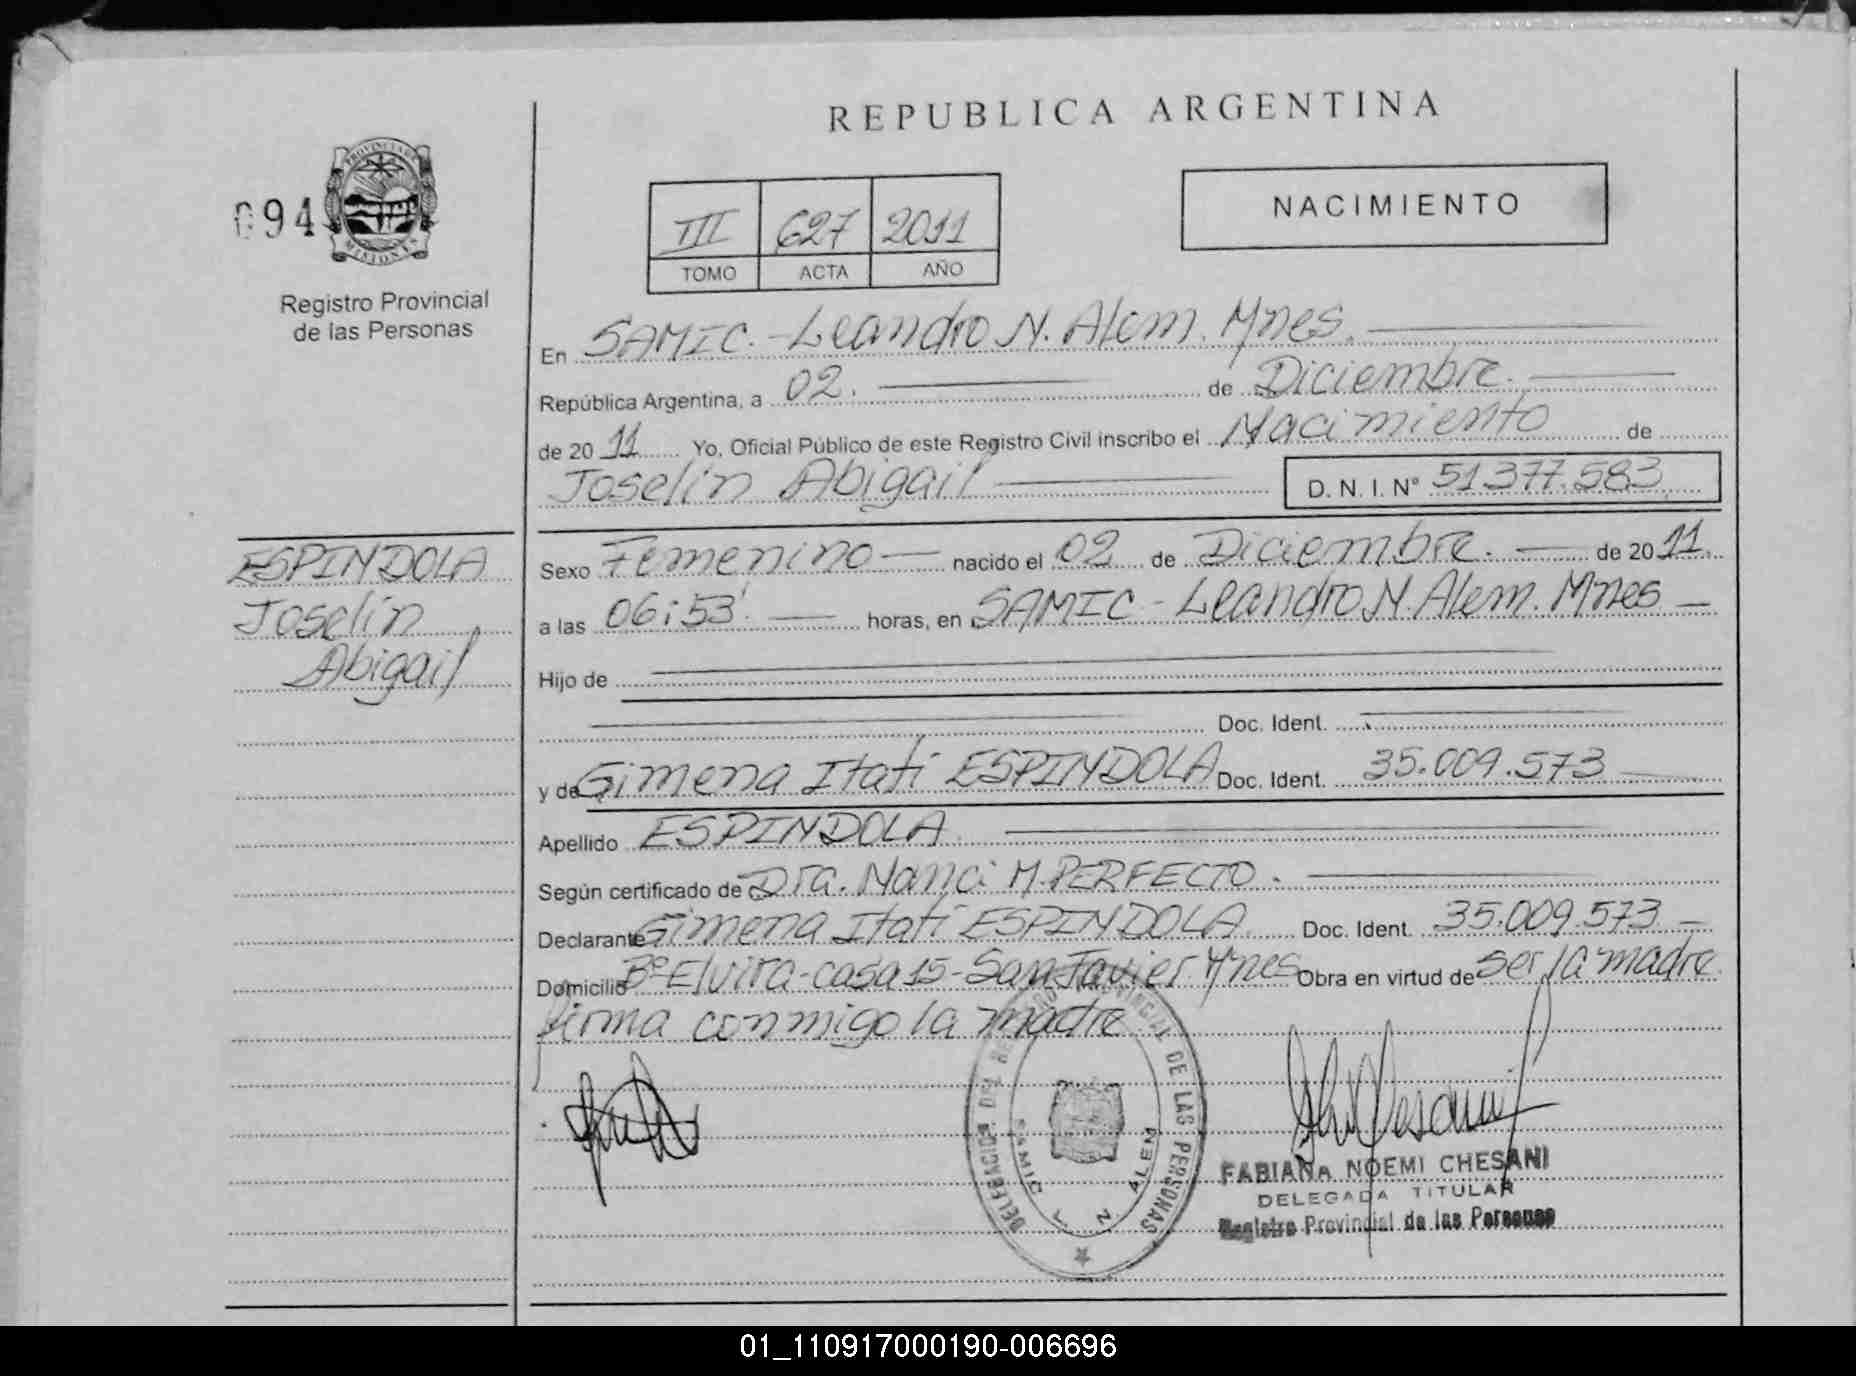 REPUBLICA ARGENTINA
NACIMIENTO
094
PROVINCIA DE
MISIONES
Registro Provincial
de las Personas
III 627 2011
TOMO ACTA AÑO
En SAMIC.-Leandro N. Alem. Mnes.
República Argentina, a 02. de Diciembre.
de 2011 Yo, Oficial Público de este Registro Civil inscribo el Nacimiento de
Joselin Abigail D. N. I. Nº 51.377.583
ESPINDOLA
Joselin
Abigail
Sexo Femenino nacido el 02 de Diciembre. de 2011.
a las 06:53'. horas, en SAMIC - Leandro N. Alem. Mnes
Hijo de
Doc. Ident.
y de Gimena Itatí ESPINDOLA Doc. Ident. 35.009.573
Apellido ESPINDOLA.
Según certificado de Dra. Nanci M. PERFECTO.
Declarante Gimena Itatí ESPINDOLA Doc. Ident. 35.009.573
Domicilio Bº Elvira-casa 15-San Javier Mnes Obra en virtud de ser la madre.
firma conmigo la madre
DELEGACION DEL REGISTRO PROVINCIAL DE LAS PERSONAS
SAMIC L. N. ALEM
FABIANA NOEMI CHESANI
DELEGADA TITULAR
Registro Provincial de las Personas
01_110917000190-006696